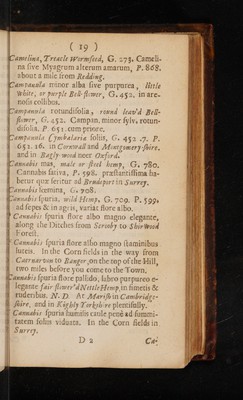 ( 19 )
Camelina, Treacle Wormseed, G. 273. Cameli-
na sive Myagrum alterum amarum, P. 868.
about a mile from Redding.
Campanula minor alba sive purpurea, little
white, or purple Bell-flower, G. 452. in are-
nosis collibus.
Campanula rotundifolia, round leav'd Bell-
flower, G. 452. Campan. minor sylv. rotun-
difolia. P. 651. cum priore.
Campanula Cymbalariæ foliis, G. 452. 7. P.
652. 16. in Cornwall and Montgomery-shire,
and in Bagly wood neer Oxford.
Cannabis mas, male or steel hemp, G. 780.
Cannabis sativa, P. 598. præstantissima ha-
betur quæ seritur ad Breadport in Surrey.
Cannabis fœmina, G. 708.
Cannabis spuria, wild Hemp, G. 709. P. 599.
ad sepes & in agris, variat flore albo.
Cannabis spuria flore albo magno elegante,
along the Ditches from Scrooby to Shirwood
Forest.
Cannabis spuria flore albo magno staminibus
luteis. In the Corn fields in the way from
Caernarvon to Bangor, on the top of the Hill,
two miles before you come to the Town.
Cannabis spuria flore pallido, labro purpureo e-
legante fair flower'd Nettle Hemp, in fimetis &
ruderibus. N. D. At Marish in Cambridge-
shire, and in Kighly Yorkshire plentifully.
Cannabis spuria humilis caule penè ad summi-
tatem foliis viduata. In the Corn fields in
Surrey.
D 2 Ca-